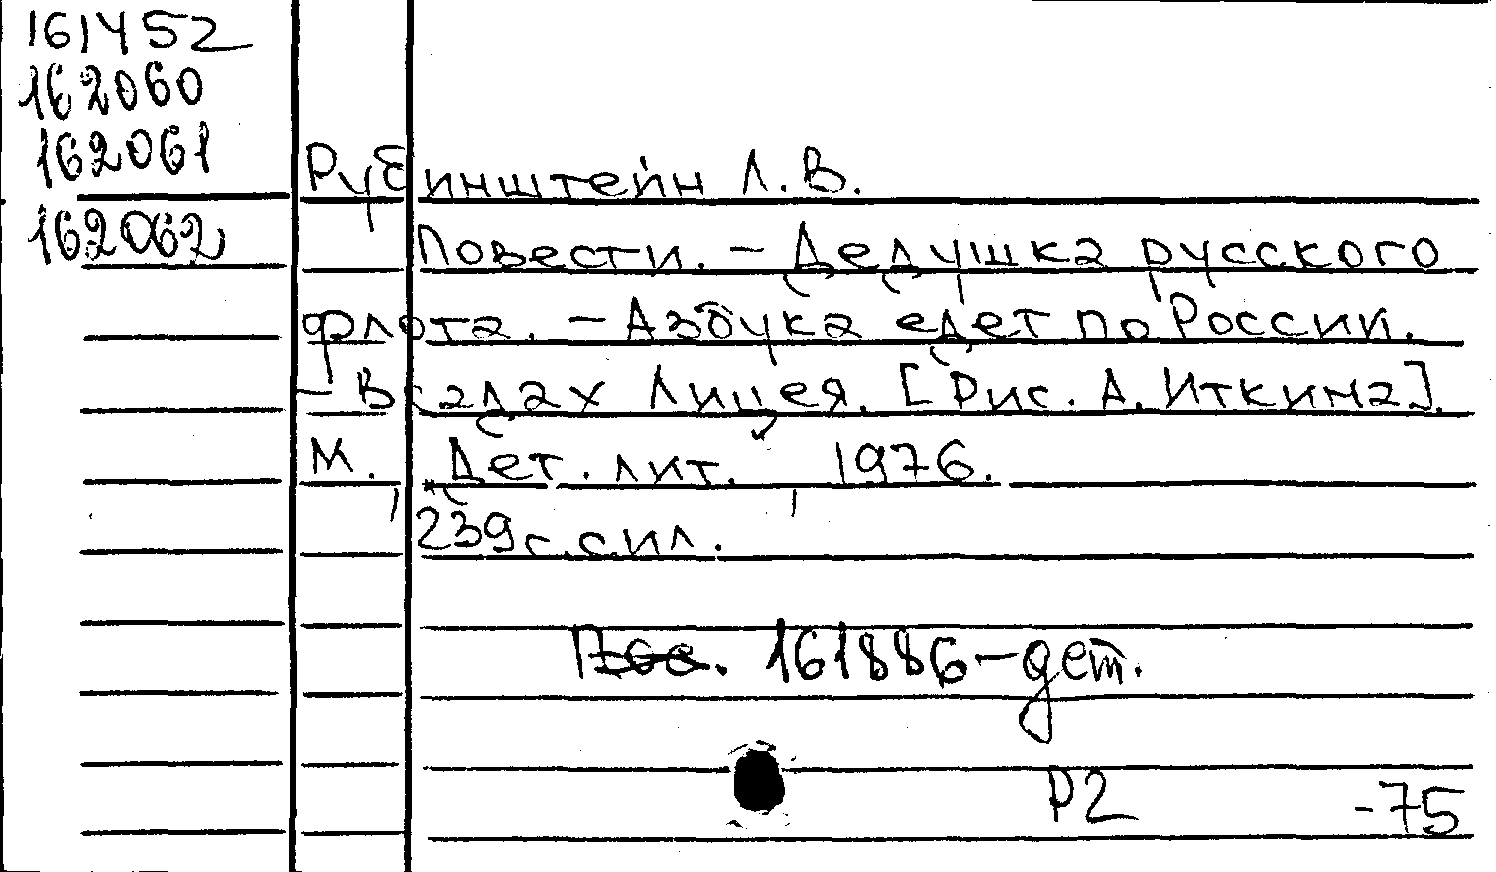 161452
162060
162061
162062
Рубинштейн Л.В.
Повести. – Дедушка русского
флота. – Азбука едет по России.
– В садах Лицея. [Рис. А. Иткина].
М., Дет. лит., 1976.
239 с. с ил.
161886 – дет.
Р2 -75